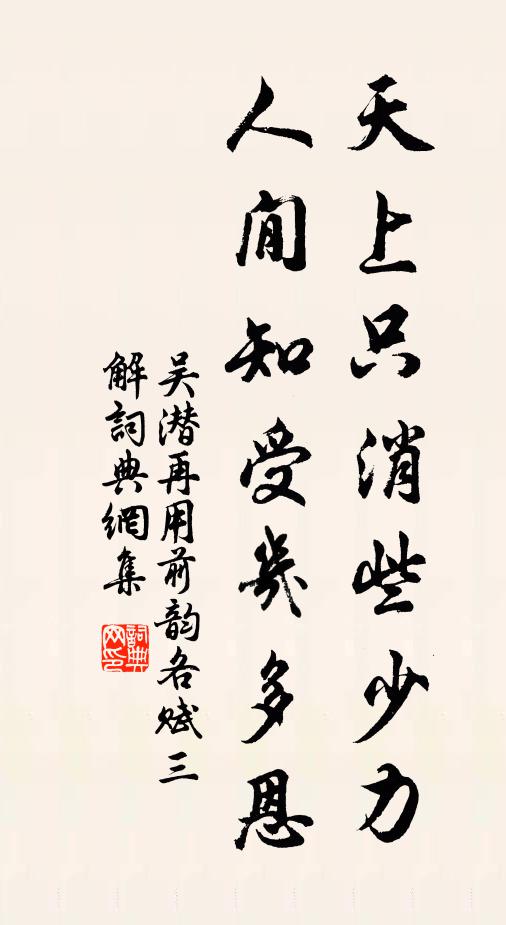 天上只消些少力
人間知受幾多恩
吴潛再用前韵各赋三
解詞典網集
詞典網印